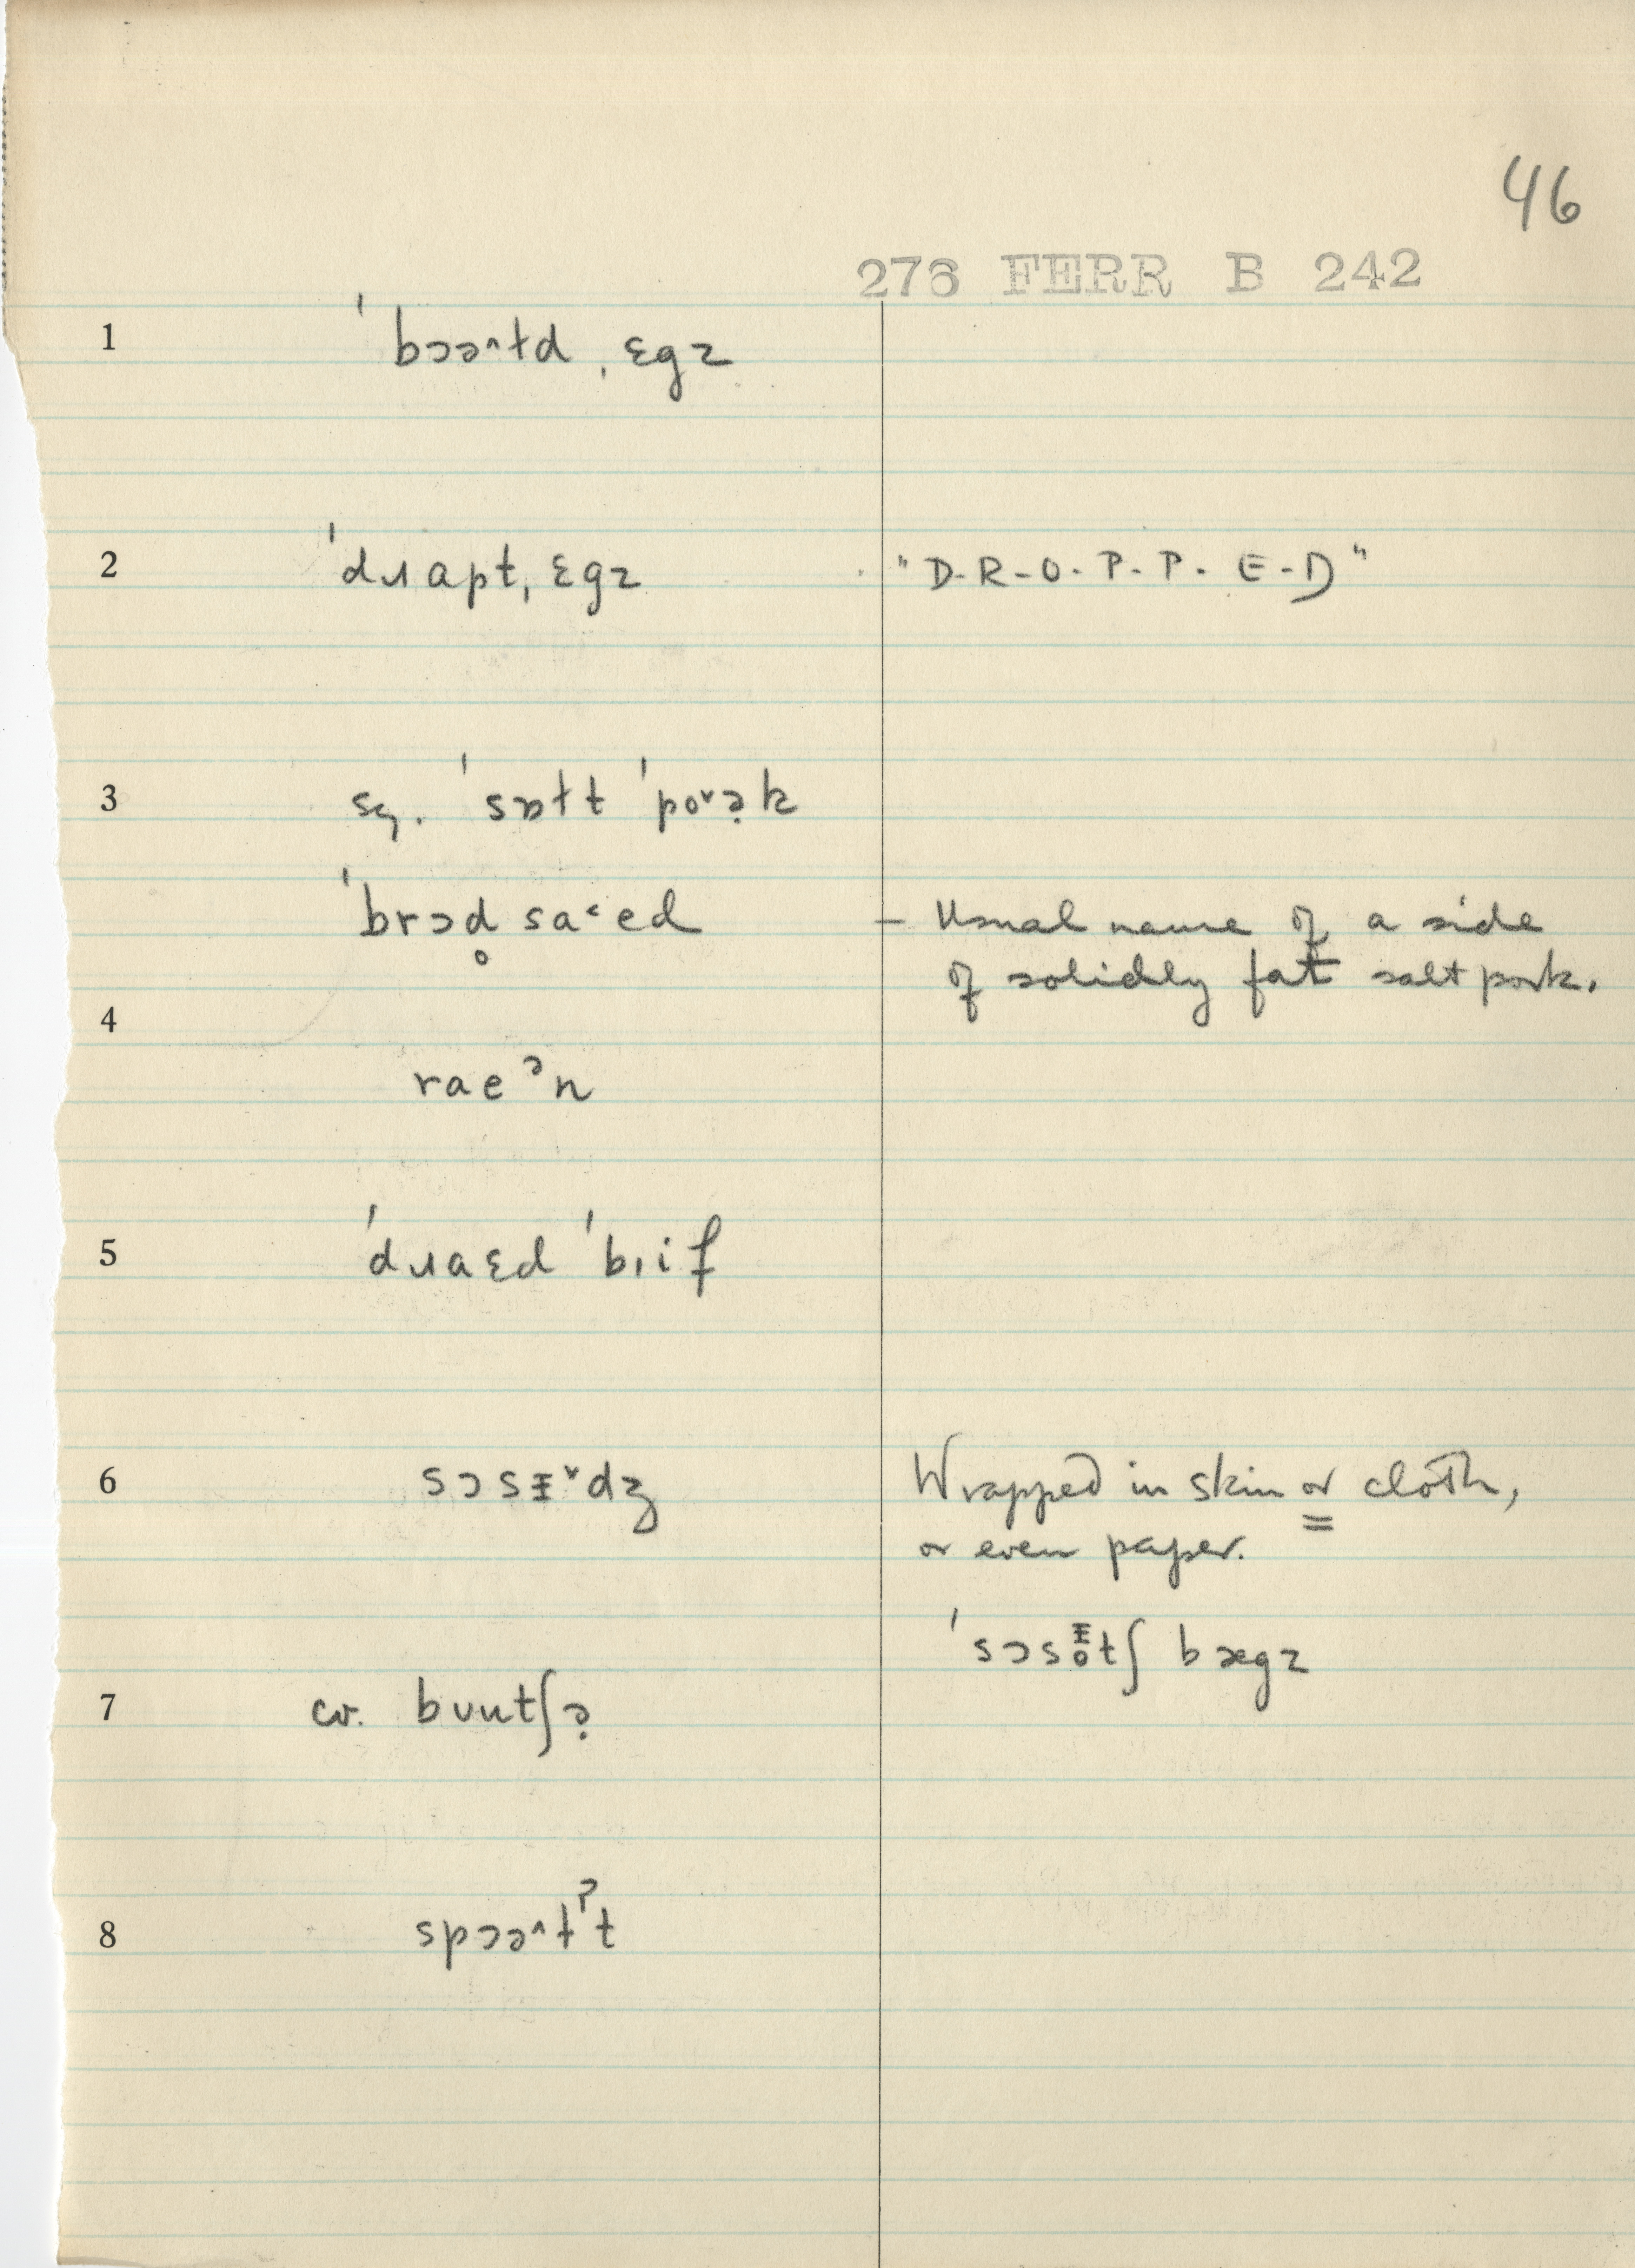 46
276 FERR B 242
1 ˈbɔə^ɫd ˌɛgz
2 ˈdɹapt ˌɛgz "D-R-O-P-P-E-D"
3 sg. ˈsɒɫt ˈpo˅ə̣k
ˈbrɔd̥ sa˂ed – Usual name of a side
of solidly fat salt pork.
4
raeᵊn
5 ˈdɹaɛd ˈbɪif
6 sɔsɪ̵˅dʒ Wrapped in skin or cloth,
or even paper.
ˈsɔsɪ̵̥tʃ bægz
7 cv. bʊutʃə̣
8 spɔə^ɫˀt